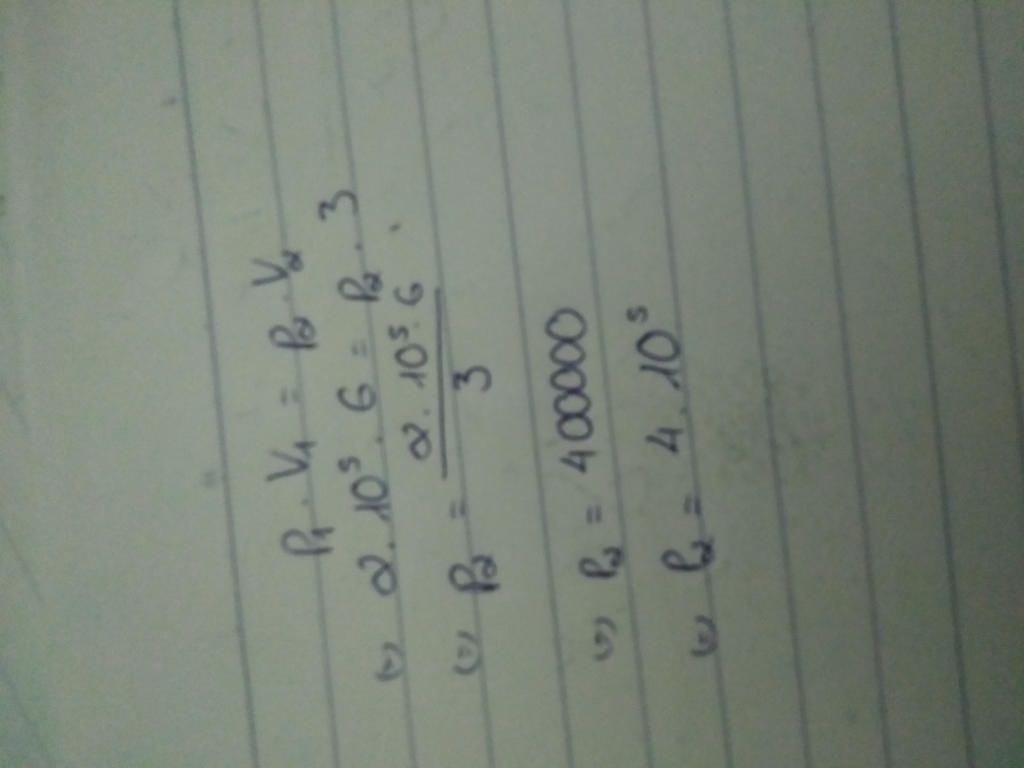 P₁ . V₁ = P₂ . V₂
(=) 2 . 10⁵ . 6 = P₂ . 3
(=) P₂ = \frac{2 . 10⁵ . 6}{3}
(=) P₂ = 400000
(=) P₂ = 4 . 10⁵